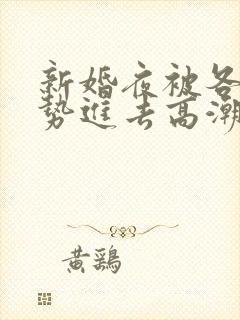 新婚夜被各
势進去高潮
黄鶏